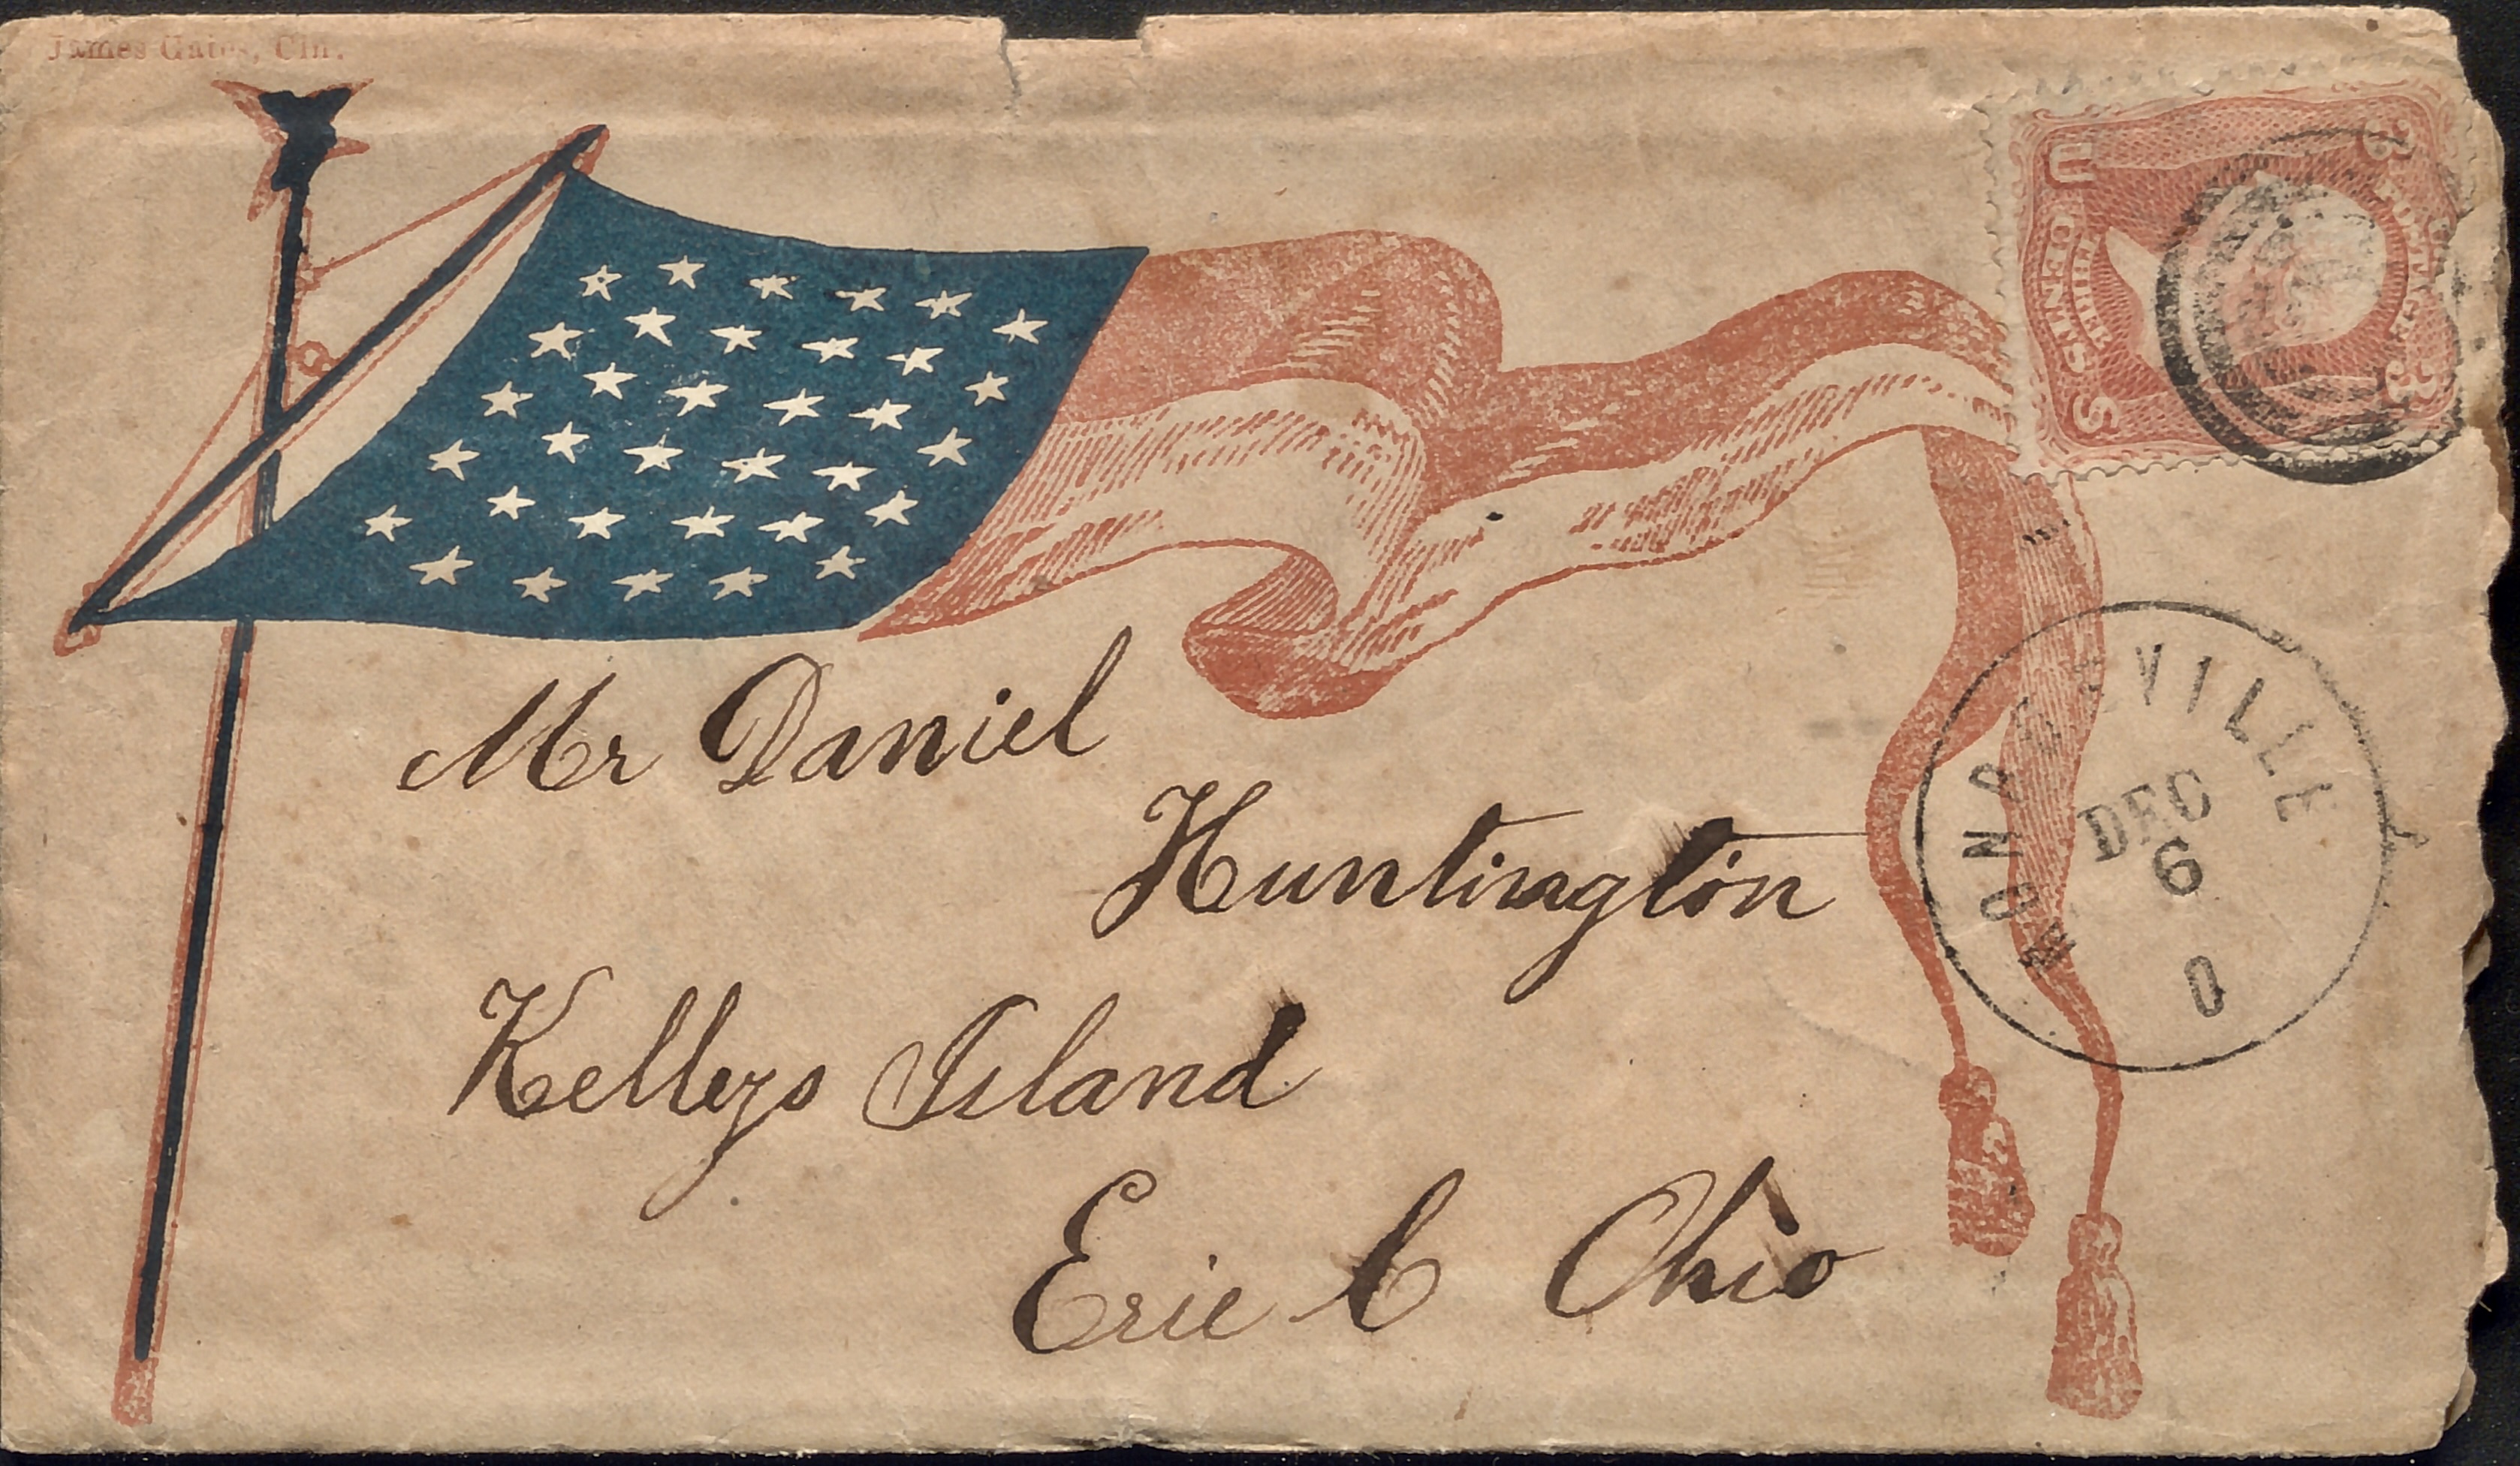 James Gates, Cin.
U S
3 POSTAGE 3
THREE CENTS
Mr Daniel
Huntington
Kelleys Island
Erie C Ohio
MONROEVILLE
DEC
6
O